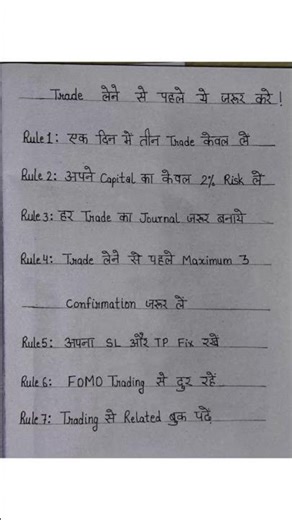 Trade लेने से पहले ये जरूर करे!
Rule 1: एक दिन में तीन Trade केवल लें
Rule 2: अपने Capital का केवल 2% Risk लें
Rule 3: हर Trade का Journal जरूर बनाये
Rule 4: Trade लेने से पहले Maximum 3
Confirmation जरूर लें
Rule 5: अपना SL और TP Fix रखें
Rule 6: FOMO Trading से दुर रहें
Rule 7: Trading से Related बुक पढें